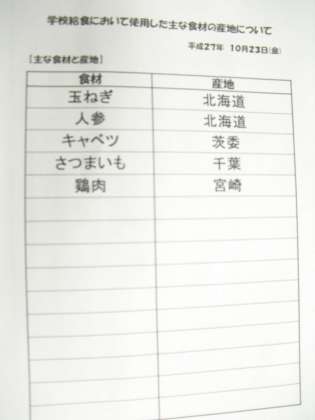 学校給食において使用した主な食材の産地について
平成27年 10月23日(金)
[主な食材と産地]
食材 産地
玉ねぎ 北海道
人参 北海道
キャベツ 茨委
さつまいも 千葉
鶏肉 宮崎